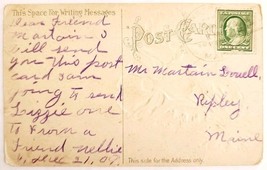 This Space for Writing Messages
Dear Friend
Martain I
will send
you this post
card I am
going to send
Lizzie one
to From a
Friend Nellie
Dec 21, 09
POST CARD
Mr Martain Lovell,
Ripley
Maine
This side for the Address only.